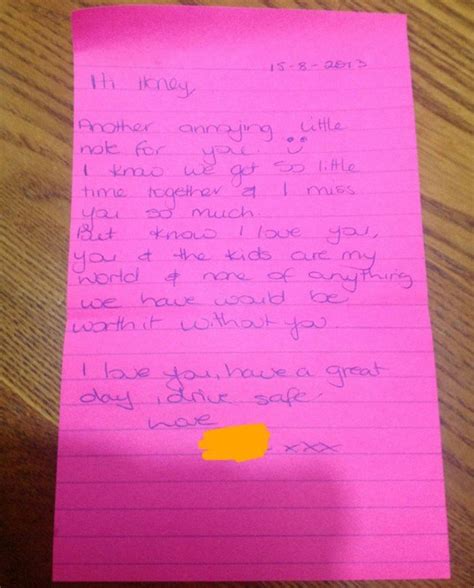 15-8-2013
Hi Honey,
Another annoying little
note for you.
I know we get so little
time together & I miss
you so much.
But know I love you,
you & the kids are my
world & none of anything
we have would be
worth it without you.
I love you, have a great
day, drive safe.
Love
xxx